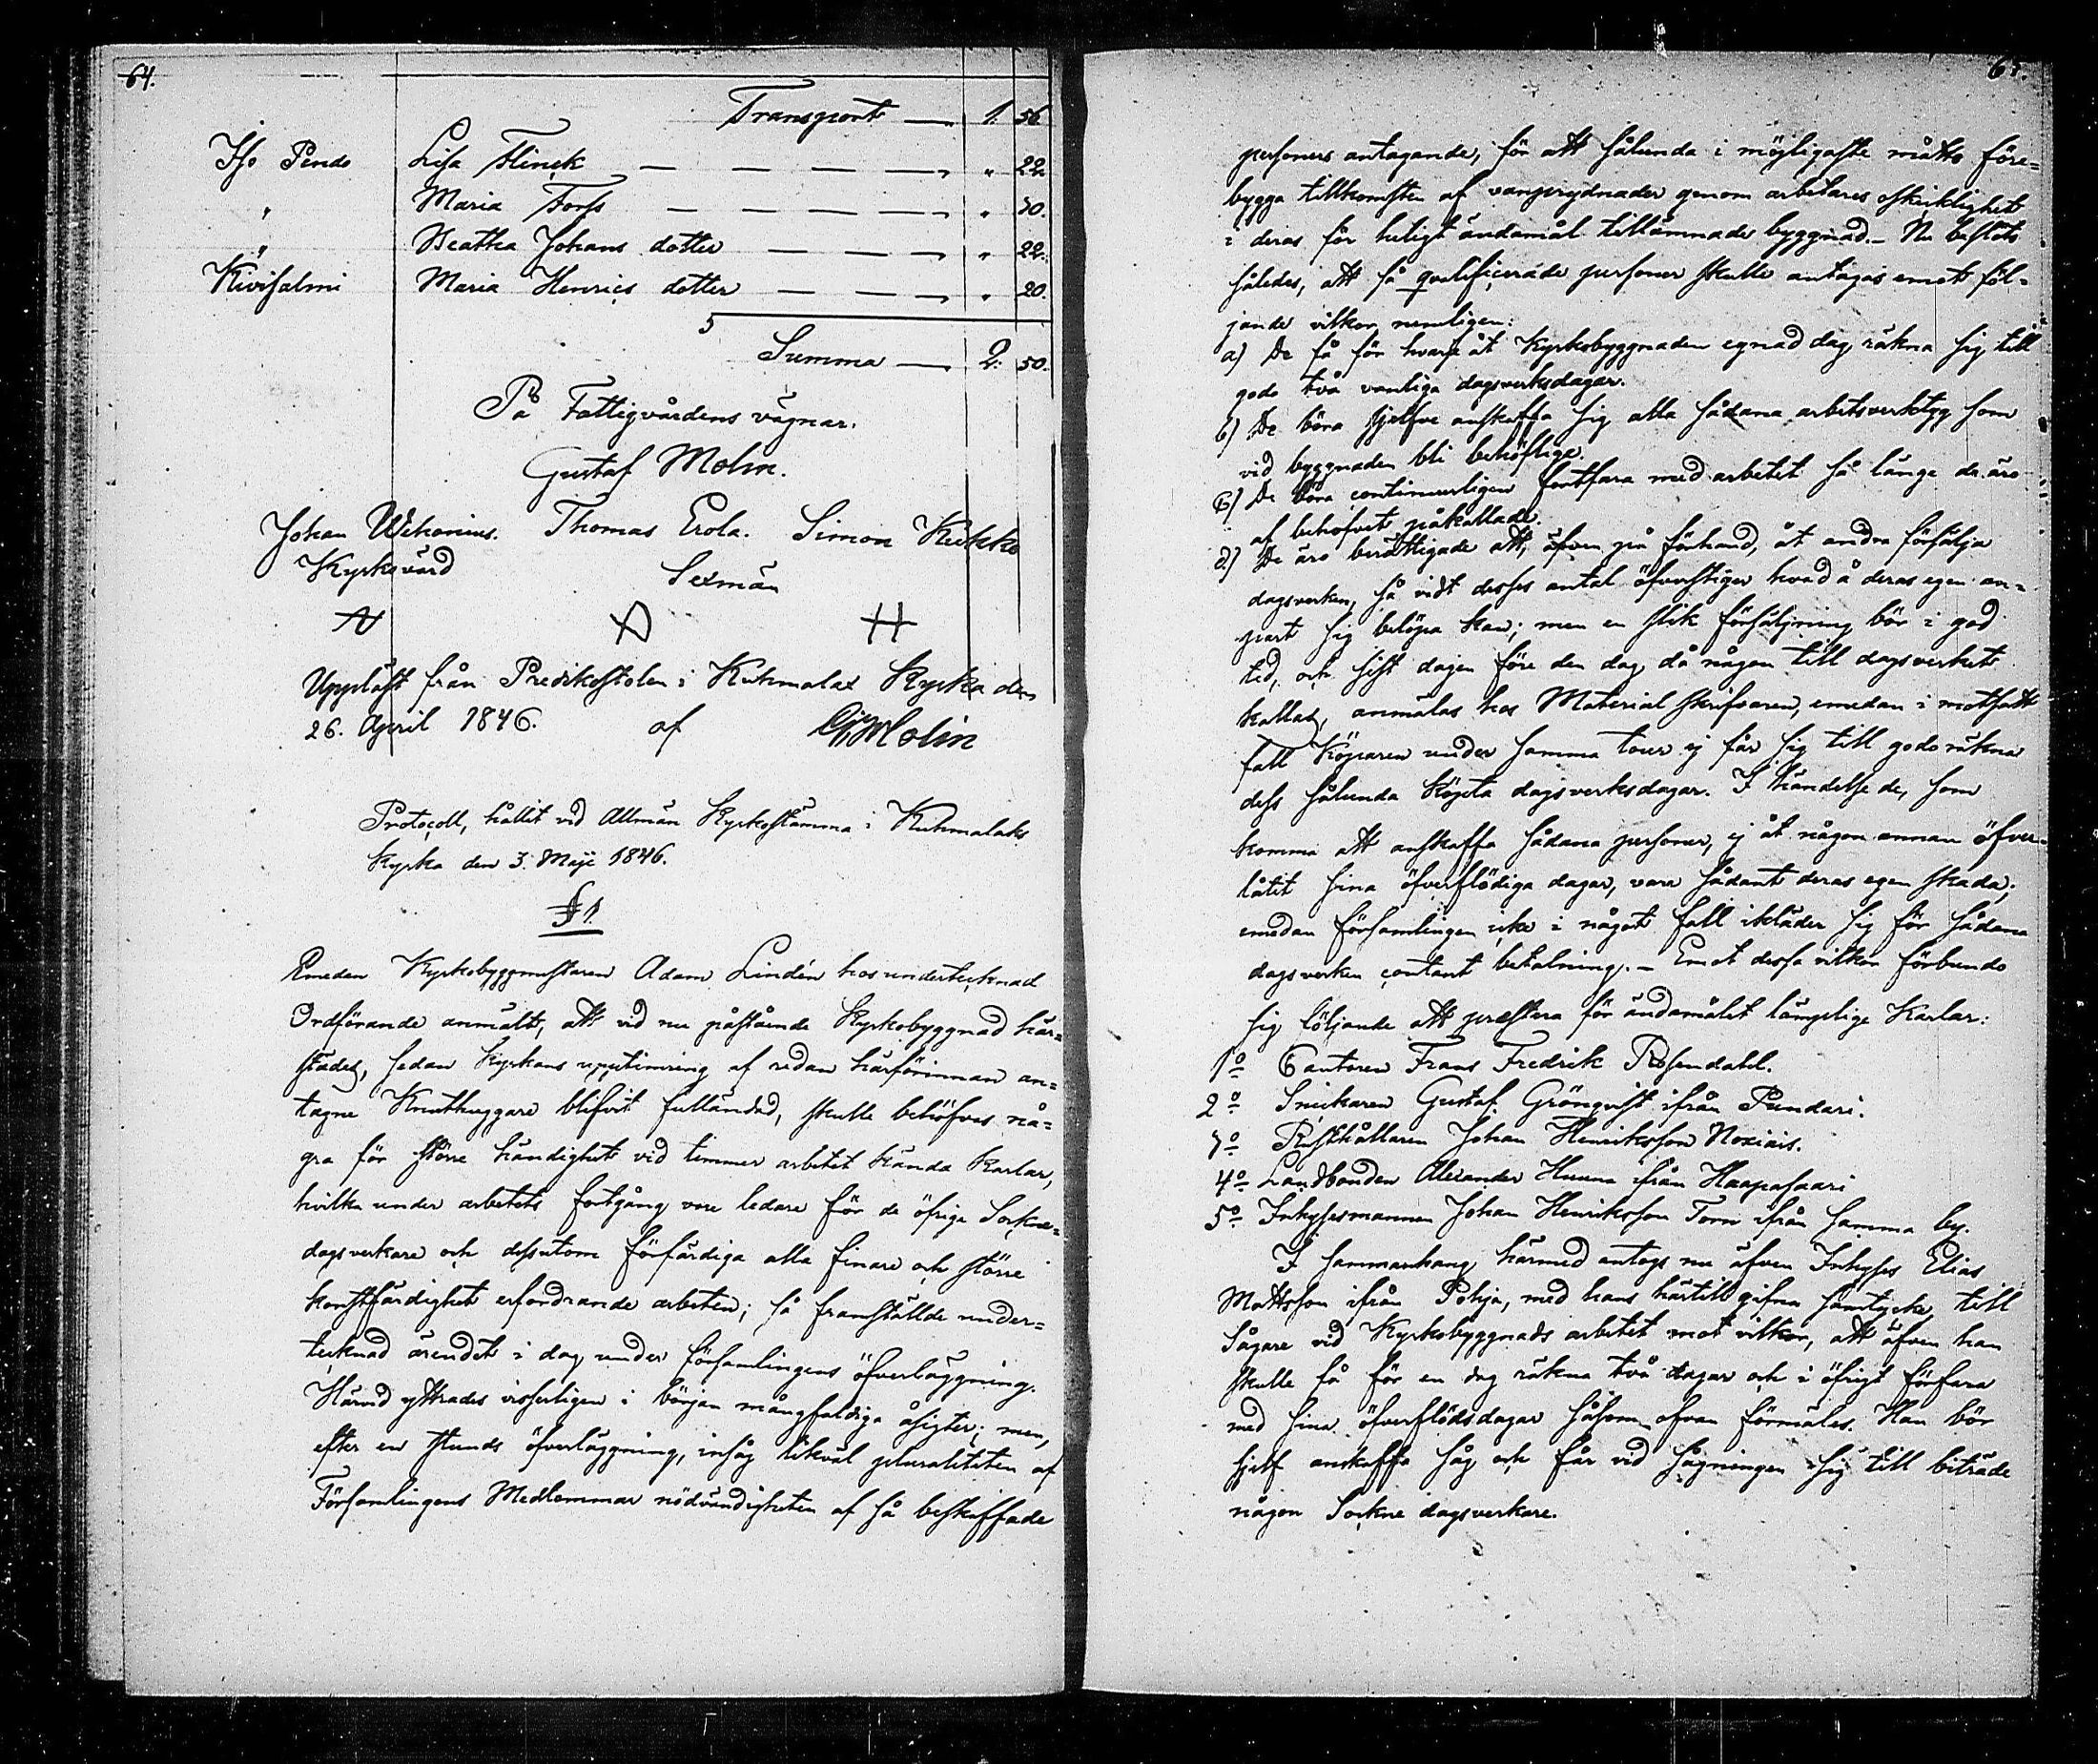 64.
Transport — 1. 56
Iso Pendo Lisa Flinck — — — — " 22.
" Maria Forss — — — — " 30.
" Beatha Johans dotter — — — " 22.
Kivisalmi Maria Henrics dotter — — — " 20.
Summa — 2. 50.
På Fattigvårdens vägnar.
Gustaf Molin.
Johan Wehonius. Thomas Erola. Simon Kukko
Kyrkovärd Sexmän
Uppläst från Predikstolen i Kuhmalax Kyrka den
26. April 1846. af G. Molin
Protocoll, hållit vid Allmän Kyrkostämma i Kuhmalaks
Kyrka den 3. Maji 1846.
§ 1.
Emedan Kyrkobyggmästaren Adam Lindén hos undertecknad
Ordförande anmält, att vid nu påstående Kyrkobyggnad här-
städes, sedan Kyrkans upptimring af redan härförinnan an-
tagne Knuthuggare blifvit fulländad, skulle behöfvas nå-
gra för större händighet vid timmer arbetet kända Karlar,
hvilka under arbetets fortgång vore ledare för de öfrige Sockne-
dagsverkare och dessutom förfärdiga alla finare och större
konstfärdighet erfordrande arbeten; så framställde under-
tecknad ärendet i dag under församlingens öfverläggning.
Härvid yttrades visserligen i början mångfaldiga åsigter; men,
efter en stunds öfverläggning, insåg likväl pluraliteten af
Församlingens Medlemmar nödvändigheten af så beskaffade
65.
personers antagande, för att sålunda i möjligaste måtto före-
bygga tillkomsten af vanprydnader genom arbetares oskicklighet
i deras för heligt ändamål tillämnade byggnad. – Nu beslöts
således, att så qvalificerade personer skulle antagas emot föl-
jande vilkor, nemligen:
a) De få för hvarje åt Kyrkobyggnaden egnad dag räkna sig till
godo två vanliga dagsverksdagar.
b) De böra sjelfve anskaffa sig alla sådana arbetsverktyg som
vid byggnaden bli behöflige.
c) De böra continuerligen fortfara med arbetet så länge de äro
af behofvet påkallade.
d.) De äro berättigade att, äfven på förhand, åt andra försälja
dagsverken, så vidt desses antal öfverstiger hvad å deras egen an-
part sig belöpa kan; men en slik försäljning bör i god
tid, och sist dagen före den dag då någon till dagsverket
kallas, anmälas hos Material skrifvaren, emedan i motsatt
fall Köparen under samma tour ej får sig till godo räkna
dess sålunda köpta dagsverksdagar. I händelse de, som
komma att anskaffa sådana personer, ej åt någon annan öfver-
låtit sina öfverflödiga dagar, vare sådant deras egen skada;
emedan församlingen icke i något fall ikläder sig för sådana
dagsverken contant betalning. – Emot dessa vilkor förbundo
sig följande att præstera för ändamålet lämplige Karlar:
1o Cantoren Frans Fredrik Rosendahl.
2o Snickaren Gustaf Grönqvist ifrån Pundari.
3o Rusthållaren Johan Henriksson Noxiais.
4o Landbonden Alexander Huuna ifrån Haapasaari
5o Inhysesmannen Johan Henriksson Torn ifrån samma by.
I sammanhang härmed antogs nu äfven Inhyses Elias
Mattsson ifrån Pohja, med hans härtill gifna samtycke till
Sågare vid Kyrkobyggnads arbetet mot vilkor, att äfven han
skulle få för en dag räkna två dagar och i öfrigt förfara
med sina öfverflödsdagar såsom ofvan förmäles. Han bör
sjelf anskaffa såg och får vid sågningen sig till biträde
någon Sockne dagsverkare.